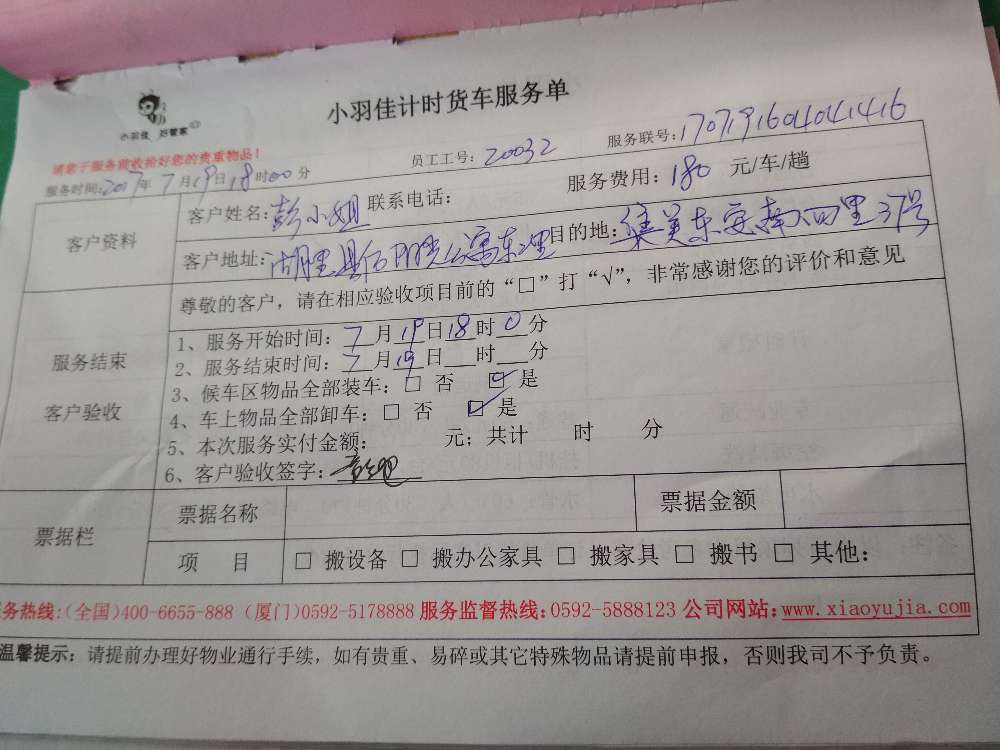 小羽佳 好管家
小羽佳计时货车服务单
请您于服务前收拾好您的贵重物品!
服务时间:2017年7月19日18时00分 员工工号:20032 服务联号:1707191604041416
客户资料
客户姓名:彭小姐 联系电话: 服务费用:180 元/车/趟
客户地址:湖里县后 公寓东里 目的地:集美东安 四里37号
尊敬的客户，请在相应验收项目前的“□”打“√”，非常感谢您的评价和意见
服务结束
客户验收
1、服务开始时间:7月19日18时0分
2、服务结束时间:7月19日 时 分
3、候车区物品全部装车:□ 否 ☑是
4、车上物品全部卸车:□ 否 ☑是
5、本次服务实付金额: 元;共计 时 分
6、客户验收签字:
票据栏
票据名称 票据金额
项 目 □ 搬设备 □ 搬办公家具 □ 搬家具 □ 搬书 □ 其他:
务热线:(全国)400-6655-888 (厦门)0592-5178888 服务监督热线:0592-5888123 公司网站:www.xiaoyujia.com
温馨提示:请提前办理好物业通行手续，如有贵重、易碎或其它特殊物品请提前申报，否则我司不予负责。